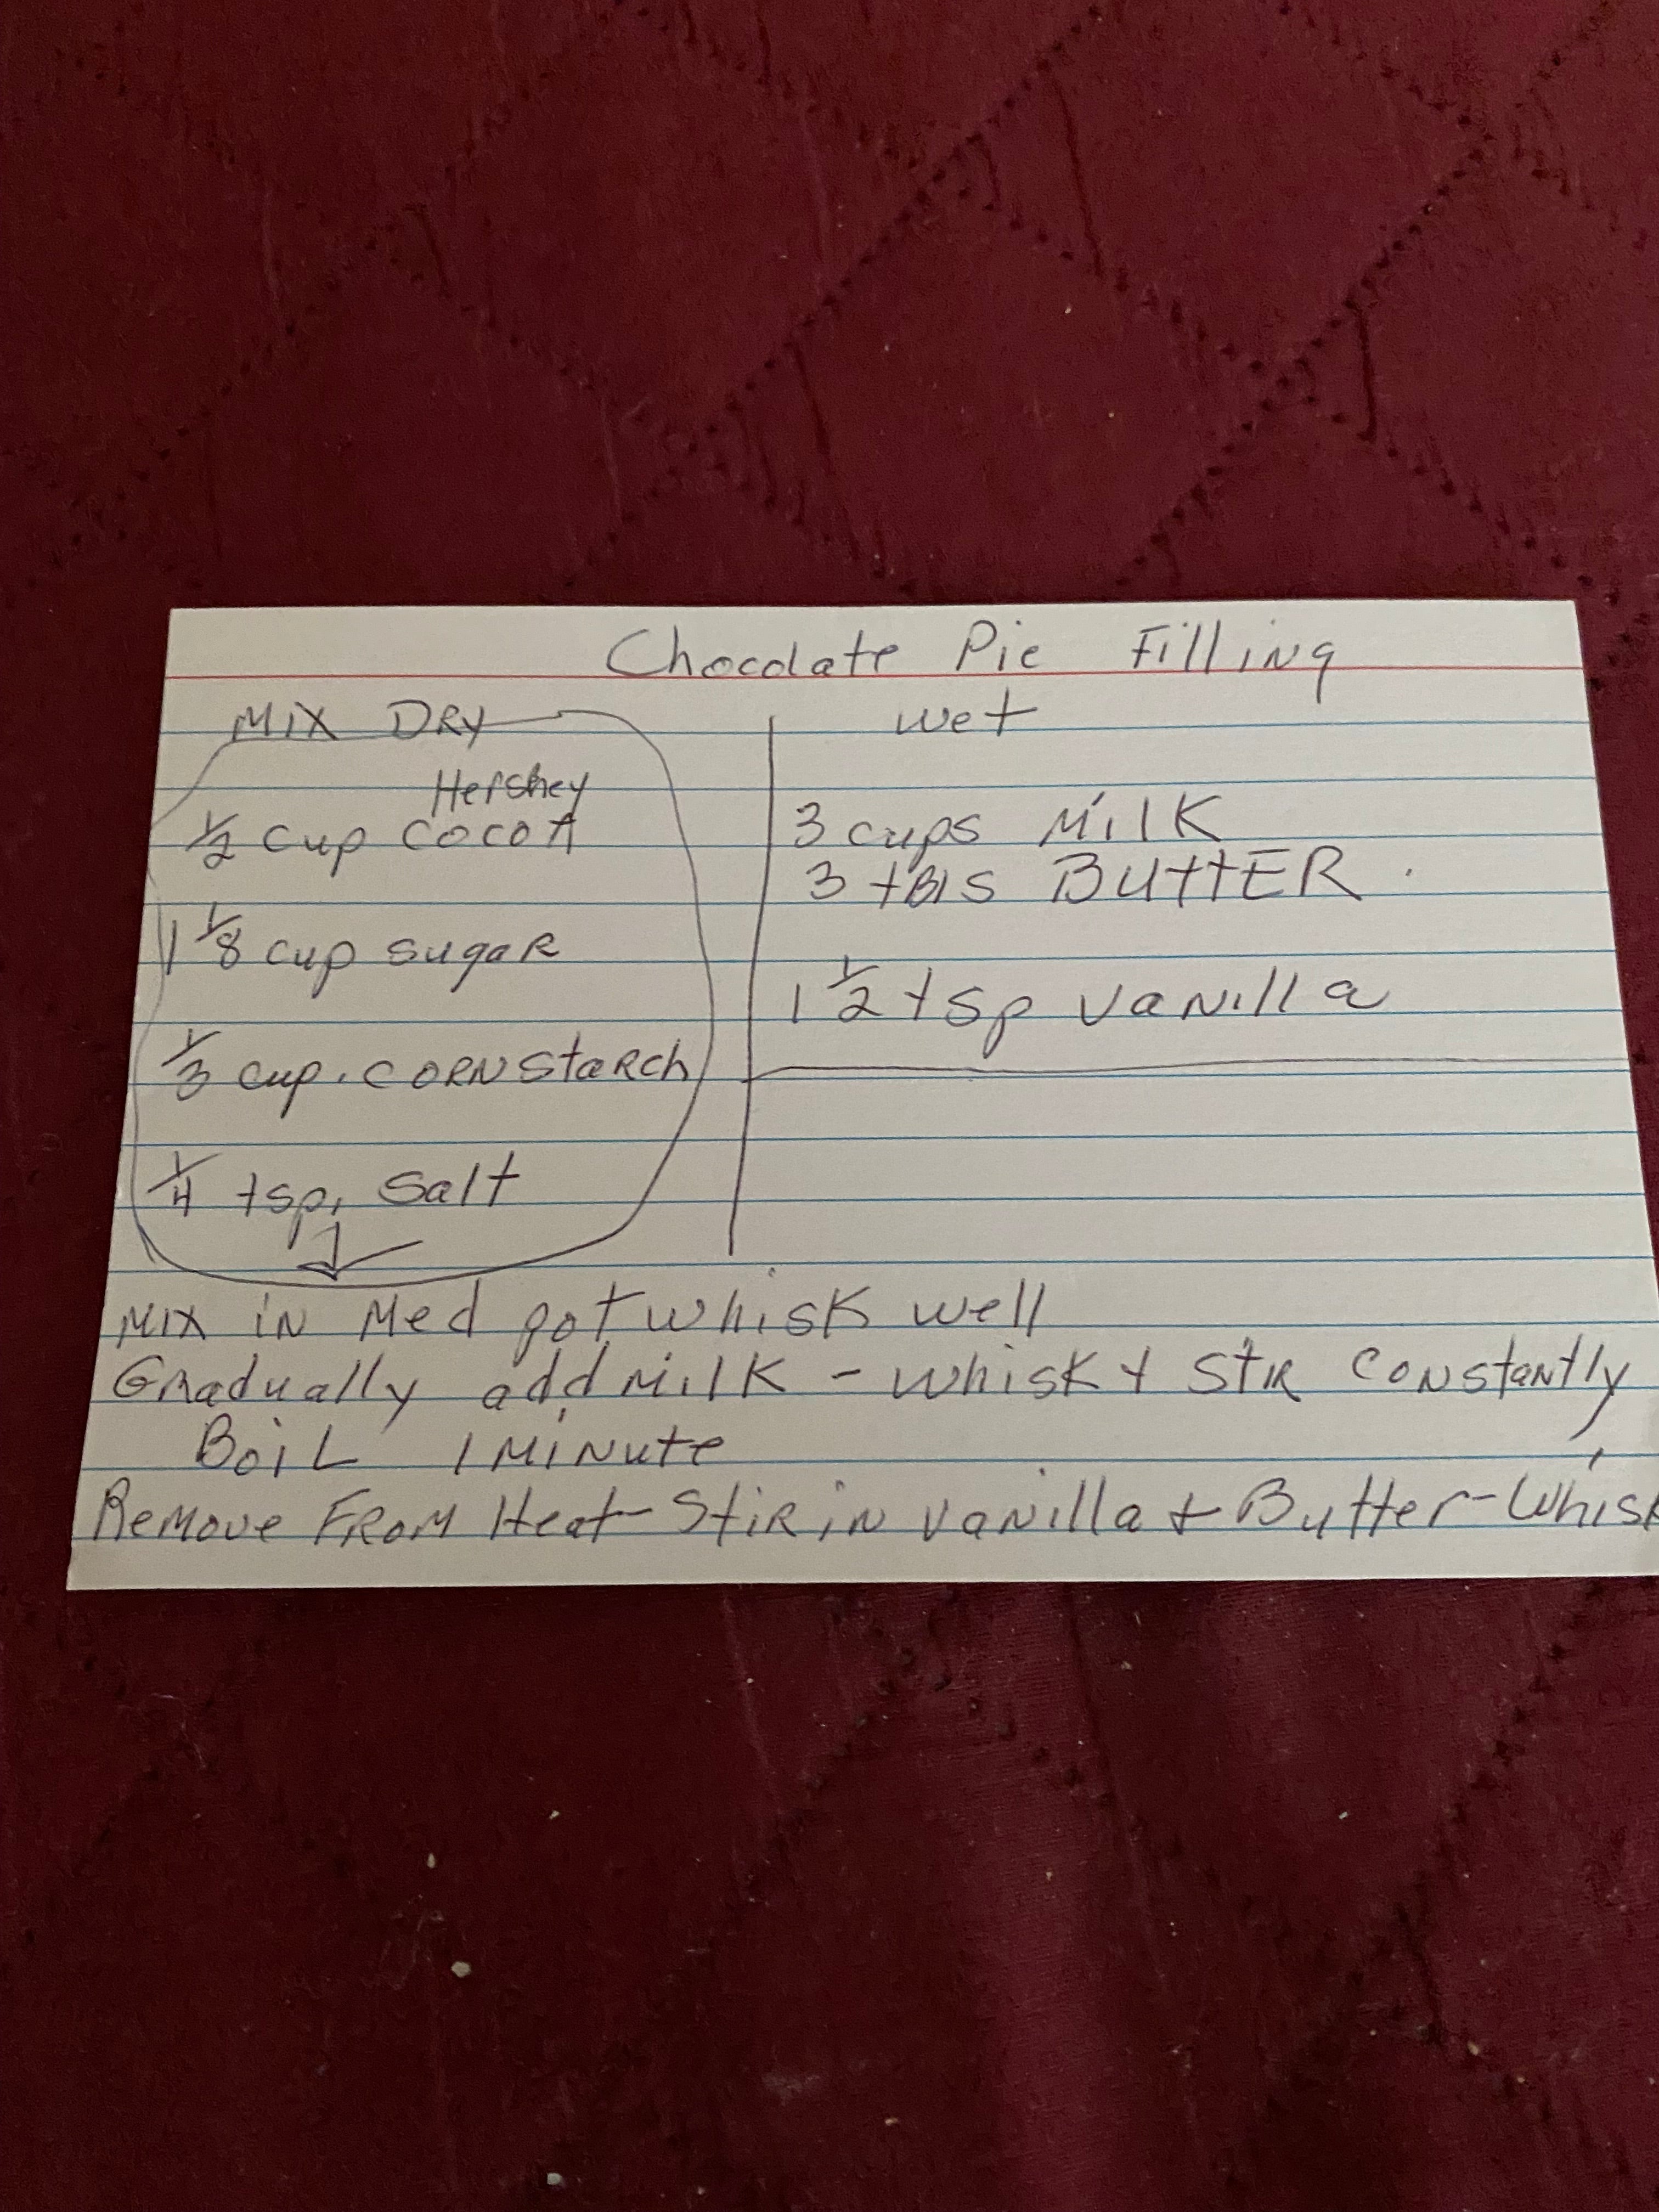 Chocolate Pie Filling
MIX DRY
Hershey
1/2 cup COCOA
1 1/8 cup sugaR
1/3 cup. CORNStaRch
1/4 tsp. Salt
wet
3 cups MilK
3 tBls BUttER.
1 1/2 tsp vaNilla
MIX iN Med pot whisK well
GRadually add MilK - whisk + StiR CoNstaNtly
BoiL 1 MiNute
RemOve FROM Heat - StiR iN vaNilla + Butter - Whisk